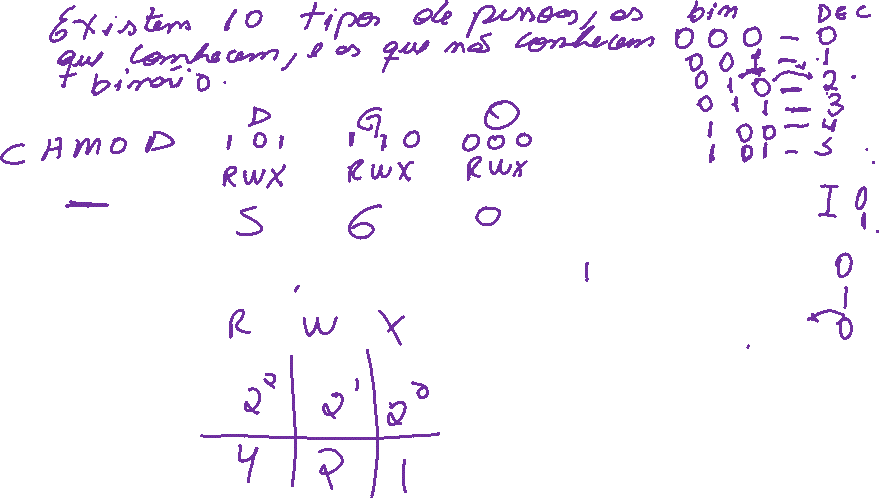 Existem 10 tipos de pessoas, os
que conhecem, e os que não conhecem
binário.
bin DEC
0 0 0 - 0
0 0 1 - 1
0 1 0 - 2
0 1 1 - 3
1 0 0 - 4
1 0 1 - 5
D G O
CHMOD 101 110 000
RWX RWX RWX
5 6 0
I 0
1
0
1
0
1
R W X
2² 2¹ 2⁰
4 2 1